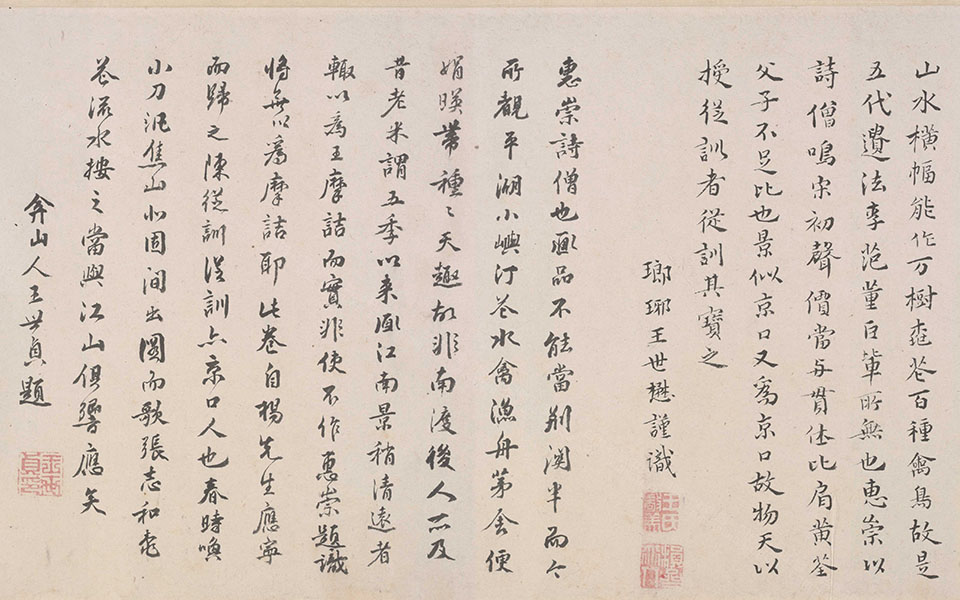 山水橫幅能作万樹桃花百種禽鳥故是
五代遺法李范董巨輩所無也惠崇以
詩僧鳴宋初聲價當与貫休比肩黃筌
父子不足比也景似京口又爲京口故物天以
授從訓者從訓其寶之
瑯琊王世懋謹識
惠崇詩僧也画品不能當荆関半而今
所觀平湖小嶼汀花水禽漁舟茅舍便
娟暎帶種種天趣故非南渡後人所及
昔老米謂五季以来画江南景稍清遠者
輙以爲王摩詰而實非使不作惠崇題識
將無以爲摩詰耶此卷自楊先生應寧
而歸之陳從訓從訓亦京口人也春時喚
小刀汎焦山北固間出圖而歌張志和桃
花流水接之當與江山俱響應矣
弇山人王世貞題